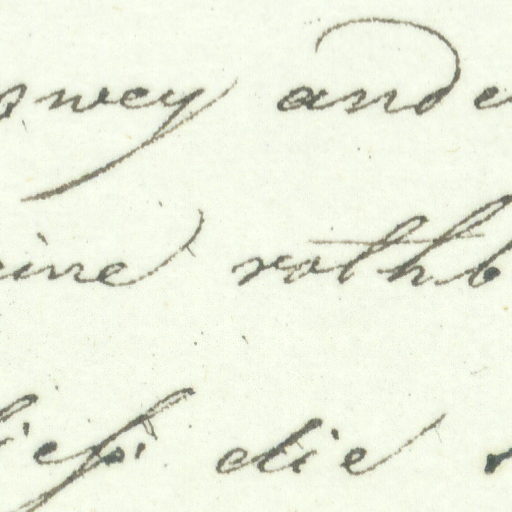 zwey ande
eine rothb
ließ die